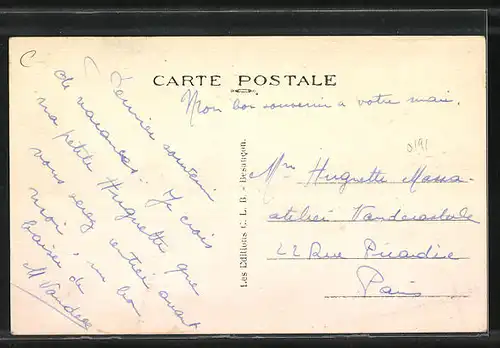 C
CARTE POSTALE
Mon bon souvenir a votre mari.
Dernier souvenir
de vacances. Je crois
ma petite Huguette que
vous serez rentrée avant
moi, un bon
baiser de
M Vander
Les Editions C. L. B. - Besançon.
0191
Mme Huguette Massa
atelier
22 Rue Picardie
Paris